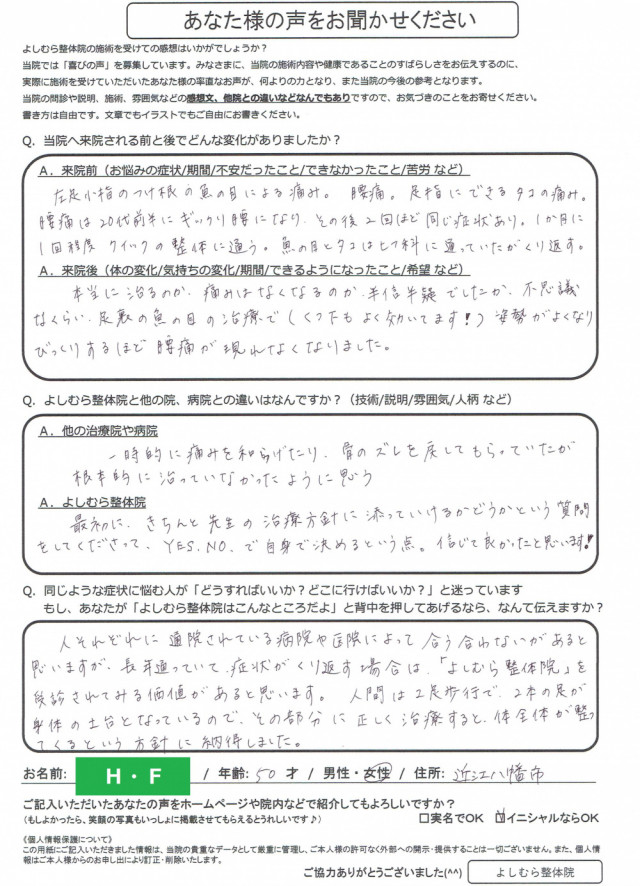 あなた様の声をお聞かせください
よしむら整体院の施術を受けての感想はいかがでしょうか？
当院では「喜びの声」を募集しています。みなさまに、当院の施術内容や健康であることのすばらしさをお伝えするのに、
実際に施術を受けていただいたあなた様の率直なお声が、何よりの力となり、また当院の今後の参考となります。
当院の問診や説明、施術、雰囲気などの感想文、他院との違いなどなんでもありですので、お気づきのことをお寄せください。
書き方は自由です。文章でもイラストでもご自由にお書きください。
Q．当院へ来院される前と後でどんな変化がありましたか？
A．来院前（お悩みの症状/期間/不安だったこと/できなかったこと/苦労 など）
左足小指のつけ根の魚の目による痛み。 腰痛。 足指にできるタコの痛み。
腰痛は20代前半にギックリ腰になり、その後2回ほど同じ症状あり。1か月に
1回程度 クイックの整体に通う。魚の目とタコはヒフ科に通っていたがくり返す。
A．来院後（体の変化/気持ちの変化/期間/できるようになったこと/希望 など）
本当に治るのか、痛みはなくなるのか、半信半疑でしたが、不思議
なくらい、足裏の魚の目の治療で（くつ下もよく効いてます！）姿勢がよくなり
びっくりするほど腰痛が現れなくなりました。
Q．よしむら整体院と他の院、病院との違いはなんですか？（技術/説明/雰囲気/人柄 など）
A．他の治療院や病院
一時的に痛みを和らげたり、骨のズレを戻してもらっていたが
根本的に治っていなかったように思う
A．よしむら整体院
最初に、きちんと先生の治療方針に添っていけるかどうかという質問
をしてくださって、YES、NO、で自身で決めるという点。信じて良かったと思います！
Q．同じような症状に悩む人が「どうすればいいか？どこに行けばいいか？」と迷っています
もし、あなたが「よしむら整体院はこんなところだよ」と背中を押してあげるなら、なんて伝えますか？
人それぞれに通院されている病院や医院によって合う合わないがあると
思いますが、長年通っていて、症状がくり返す場合は、「よしむら整体院」を
受診されてみる価値があると思います。 人間は2足歩行で、2本の足が
身体の土台となっているので、その部分に正しく治療すると、体全体が整っ
てくるという方針に納得しました。
お名前： H・F / 年齢：50 才 / 男性・女性 / 住所： 近江八幡市
ご記入いただいたあなたの声をホームページや院内などで紹介してもよろしいですか？
（もしよかったら、笑顔の写真もいっしょに掲載させてもらえるとうれしいです♪） □実名でOK ☑イニシャルならOK
《個人情報保護について》
この用紙にご記入いただきました情報は、当院の貴重なデータとして厳重に管理し、ご本人様の許可なく外部への開示・提供することは一切ございません。また、個人情
報はご本人様からのお申し出により訂正・削除いたします。
ご協力ありがとうございました(^^) よしむら整体院